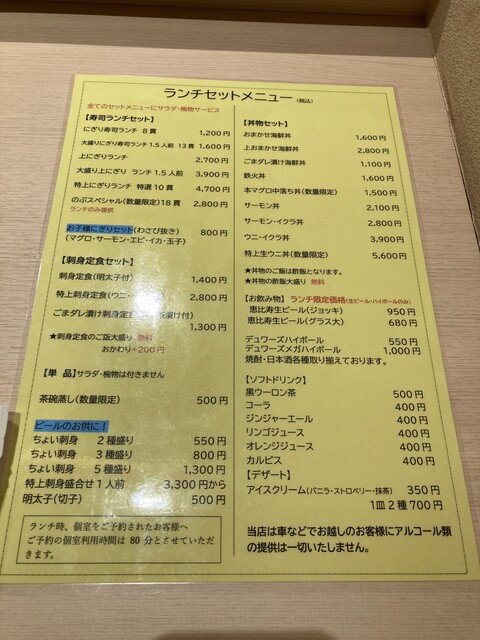 ランチセットメニュー (税込)
全てのセットメニューにサラダ・椀物サービス
【寿司ランチセット】
にぎり寿司ランチ 8貫 1,200円
大盛りにぎり寿司ランチ 1.5人前 13貫 1,600円
上にぎりランチ 2,700円
大盛り上にぎり ランチ 1.5人前 3,900円
特上にぎりランチ 特選10貫 4,700円
のぶスペシャル(数量限定)18貫 2,800円
ランチのみ提供
お子様にぎりセット(わさび抜き) 800円
(マグロ・サーモン・エビ・イカ・玉子)
【刺身定食セット】
刺身定食(明太子付) 1,400円
特上刺身定食(ウニ・ 2,800円
ごまダレ漬け刺身定食 漬け付)
1,300円
★刺身定食のご飯大盛り 無料
おかわり+200円
【単 品】サラダ・椀物は付きません
茶碗蒸し(数量限定) 500円
ビールのお供に!
ちょい刺身 2種盛り 550円
ちょい刺身 3種盛り 800円
ちょい刺身 5種盛り 1,300円
特上刺身盛合せ1人前 3,300円から
明太子(切子) 500円
ランチ時、個室をご予約されたお客様へ
ご予約の個室利用時間は 80 分とさせていただ
きます。
【丼物セット】
おまかせ海鮮丼 1,600円
上おまかせ海鮮丼 2,800円
ごまダレ漬け海鮮丼 1,100円
鉄火丼 1,600円
本マグロ中落ち丼(数量限定) 1,500円
サーモン丼 2,100円
サーモン・イクラ丼 2,800円
ウニ・イクラ丼 3,900円
特上生ウニ丼(数量限定) 5,600円
★丼物のご飯は酢飯となります。
★丼物の酢飯大盛り 無料
【お飲み物】 ランチ限定価格(生ビール・ハイボールのみ)
恵比寿生ビール(ジョッキ) 950円
恵比寿生ビール(グラス大) 680円
デュワーズハイボール 550円
デュワーズメガハイボール 1,000円
焼酎・日本酒各種取り揃えております。
【ソフトドリンク】
黒ウーロン茶 500円
コーラ 400円
ジンジャーエール 400円
リンゴジュース 400円
オレンジジュース 400円
カルピス 400円
【デザート】
アイスクリーム(バニラ・ストロベリー・抹茶) 350円
1皿2種700円
当店は車などでお越しのお客様にアルコール類
の提供は一切いたしません。